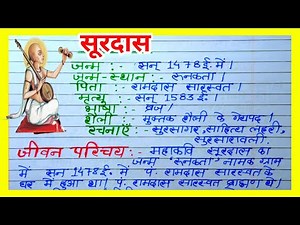 सूरदास
जन्म :- सन् 1478 ई. में।
जन्म-स्थान :- रुनकता।
पिता :- रामदास सारस्वत।
मृत्यु :- सन् 1583 ई.।
भाषा :- ब्रज।
शैली :- मुक्तक शैली के गेयपद
रचनाएँ - सूरसागर, साहित्य लहरी,
सूरसारावली।
जीवन परिचय :- महाकवि सूरदास का
जन्म रुनकता नामक ग्राम
में सन् 1478 ई. में पं. रामदास सारस्वत के
घर में हुआ था। पं. रामदास सारस्वत ब्राह्मण थे।